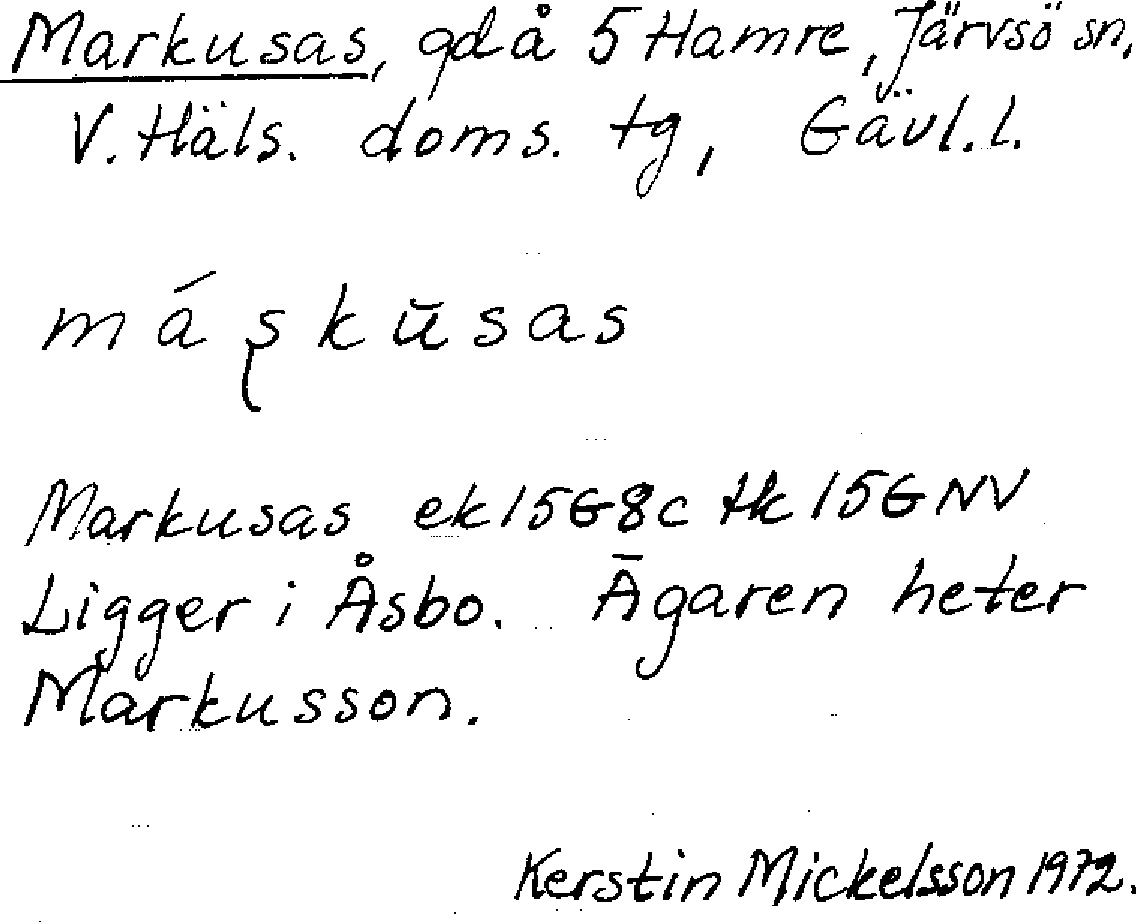 Markusas, gd å 5 Hamre, Järvsö sn,
V. Häls. doms. tg, Gävl. l.
má ʂ k ŭ s a s
Markusas ek 15G8c tk 15G NV
Ligger i Åsbo. Ägaren heter
Markusson.
Kerstin Mickelsson 1972.